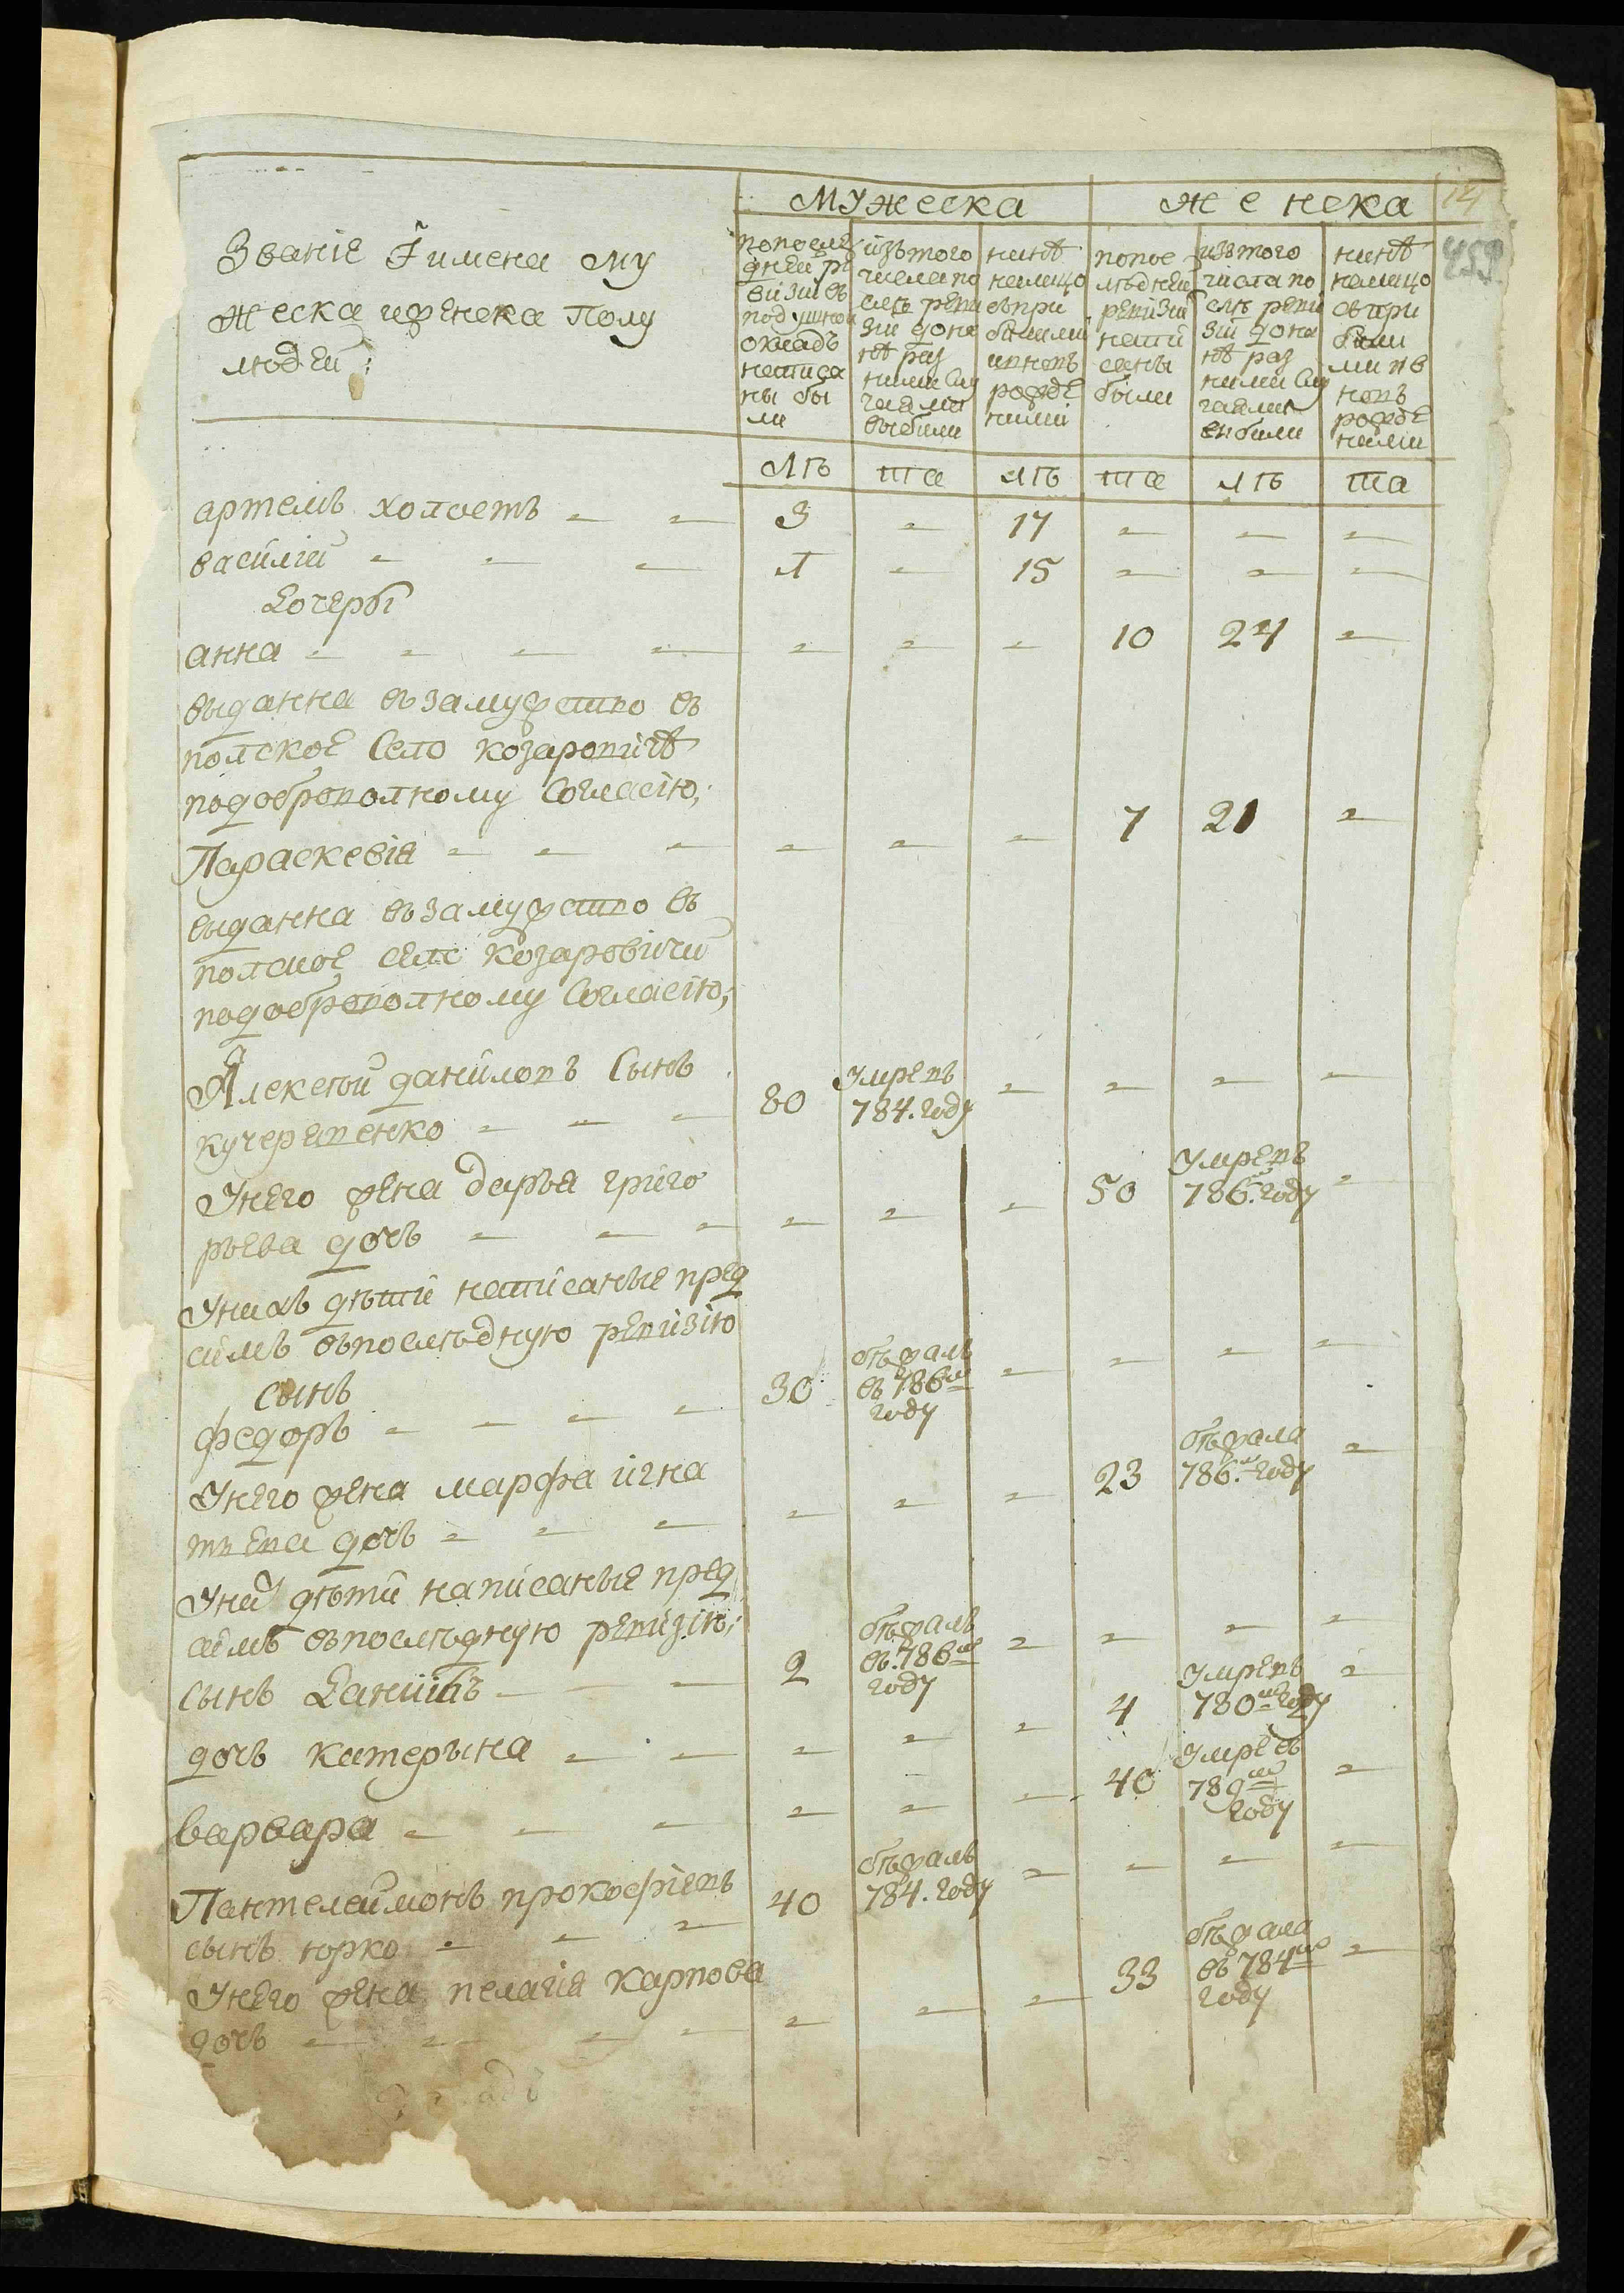 мужеска женска 14
459
Званіе И имена му
жеска и женска полу
людей:
попослѣ
дней ре
визіи въ
подушном
окладѣ
написа
ны бы
ли
изътого
числа по
слѣ реви
зіи до ны
нѣ раз
ными слу
чаями
выбыли
нынѣ
налицо
съпри
былими
ивновъ
рожде
ними
попос
лѣдней
ревизіи
напи
саны
были
изътого
числа по
слѣ реви
зіи до ны
нѣ раз
ними слу
чаями
выбыли
нынѣ
налицо
съпри
были
ми и в
новъ
рожде
ними
лѣ та лѣ та лѣ та
артемъ холостъ - - 3 - 17 - - -
василій - - - 1 - 15 - - -
Дочери
анна - - - - - - - 10 24 -
выданна въ замужство въ
полское село козаровичѣ
подоброволному согласію;
Параскевія - - - - - - 7 21 -
выданна въ замужство въ
полское село козаровичи
подоброволному согласію;
Алексѣй данилов сынъ
кучеревенко - - - 80 умревъ 784. году - - - -
Унего жена дарья григо
рьева дочь - - - - - - 50 умревъ 786.го году -
Унихъ дѣти написаные пред
симъ въпослѣдную ревизію
сынъ
федоръ - - - - 30 бѣжалъ въ 786м году - - - -
Унего жена марфа игна
твева дочь - - - - - - 23 бѣжала 786.м году -
Уних дѣти написаные пред
симъ въпослѣдную ревизію;
сынъ Данилъ - - 2 бѣжалъ въ.786м году - - - -
дочъ катерына - - - - - 4 умревъ 780м году -
варвара - - - - - - 40 умре въ 789м году -
Пантелеймонъ прокофіевъ
сынъ юрко - - - 40 бѣжалъ 784. году - - - -
Унего жена пелагія карпова
дочь - - - - - - - 33 бѣжала въ 784м году -